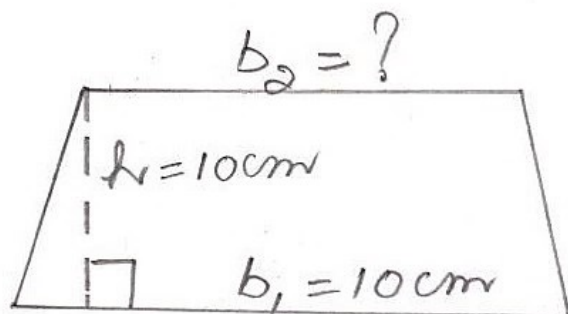 b₂ = ?
h = 10cm
b₁ = 10cm